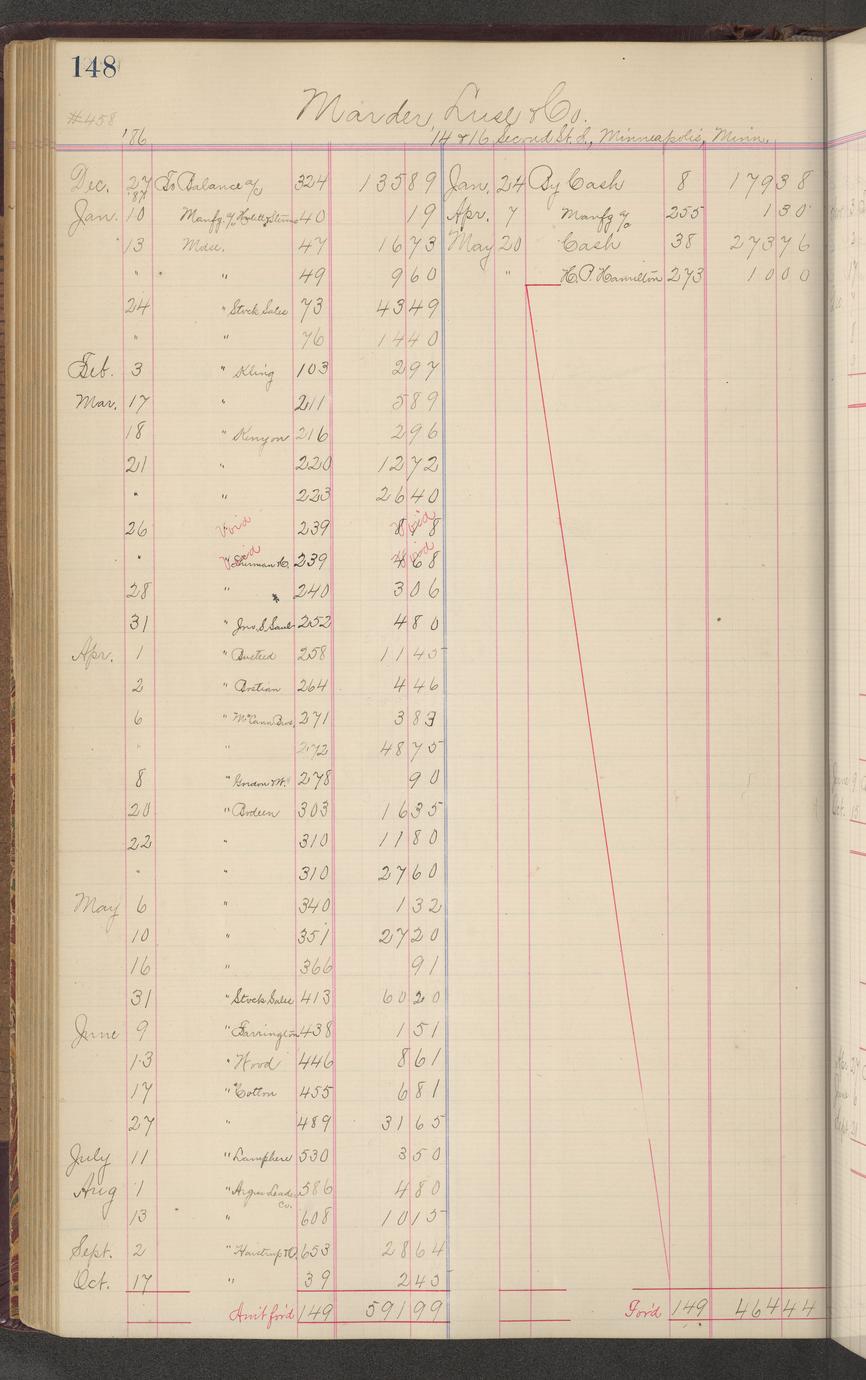 148
#458
Marder Luse & Co.
'86
14 & 16 Second St. S., Minneapolis, Minn.
Dec. 27 To Balance a/c 324 135 89 Jan. 24 By Cash 8 179 38
'87
Jan. 10 Manfg. a/c 40 19 Apr. 7 Manfg a/c 255 1 30
13 Mdse. 47 16 73 May 20 Cash 38 273 76
" " 49 9 60 " H.P. Hamilton 273 10 00
24 " Stock Sales 73 43 49
" " 76 14 40
Feb. 3 " Kling 103 2 97
Mar. 17 " 211 5 89
18 " Kenyon 216 2 96
21 " 220 12 72
" " 223 26 40
26 Void 239 8 98 Void
" Void " 239 4 68 Void
28 " 240 3 06
31 " Jno. S. 252 4 80
Apr. 1 " Busted 258 11 45
2 " Bretian 264 4 46
6 " McCann Bros. 271 3 83
" " 272 48 75
8 " Gordon & W. 278 90
20 " Bodeen 303 16 35
22 " 310 11 80
" " 310 27 60
May 6 " 340 1 32
10 " 351 27 20
16 " 366 91
31 " Stock Sales 413 60 20
June 9 " Farrington 438 1 51
13 " Wood 446 8 61
17 " Cotton 455 6 81
27 " 489 31 65
July 11 " Lamphere 530 3 50
Aug 1 " Argus Leader Co. 586 4 80
13 " 608 10 15
Sept. 2 " 653 28 64
Oct. 17 " 39 2 45
Amt ford 149 591 99 Ford 149 464 44